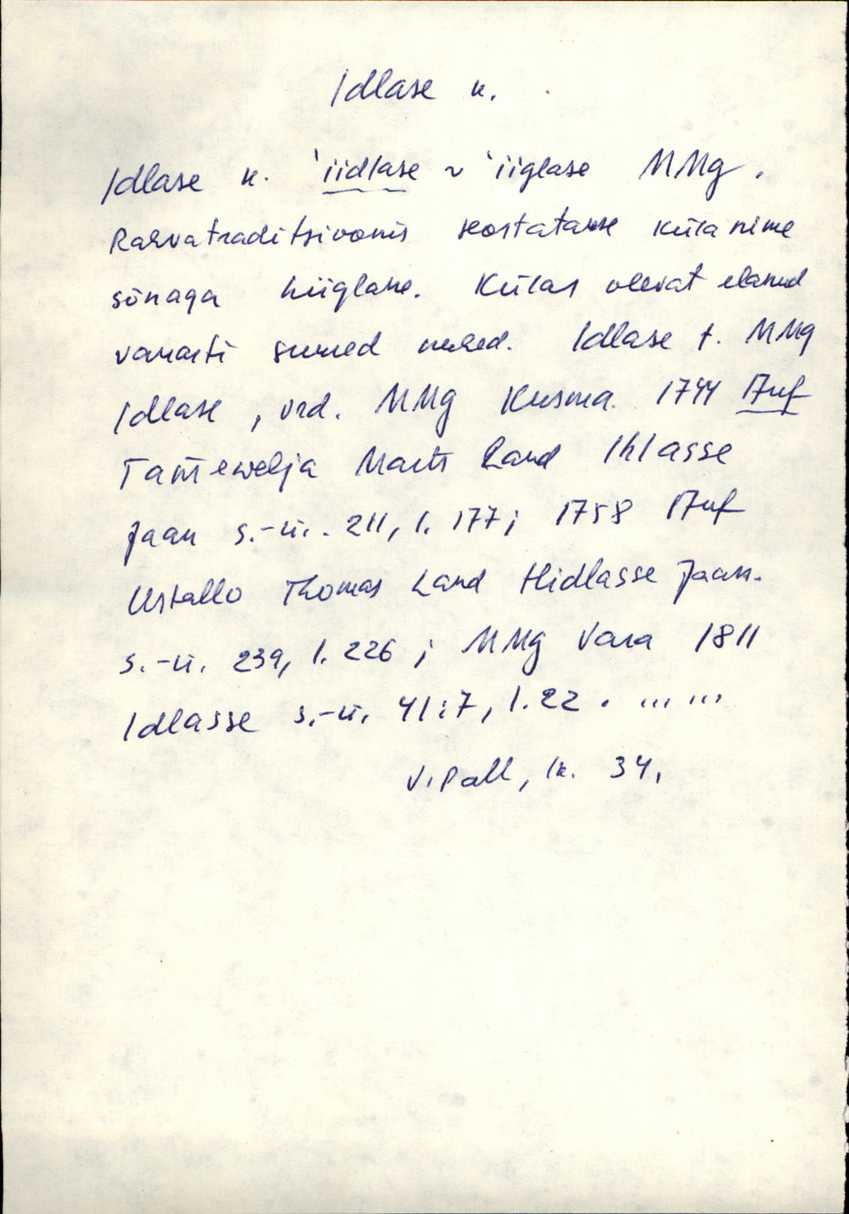 Idlase k.
Idlase k. 'iidlase ~ 'iiglase MMg.
Rahvatraditsioonis seostatakse küla nime
sõnaga hiiglane. Külas olevat elanud
vanasti suured mehed. Idlase t. MMg
Idlase, vrd. MMg Kusma. 1744 Auf
Tam̄ewelja Marts Land Ihlasse
Jaan s.-ü. 211, l. 177; 1758 Auf
Ustallo Thomas Land Hidlasse Jaan.
s.-ü. 239, l. 226; MMg Vara 1811
Idlasse s.-ü. 41:7, l. 22. ... ...
V. Pall, lk. 34.